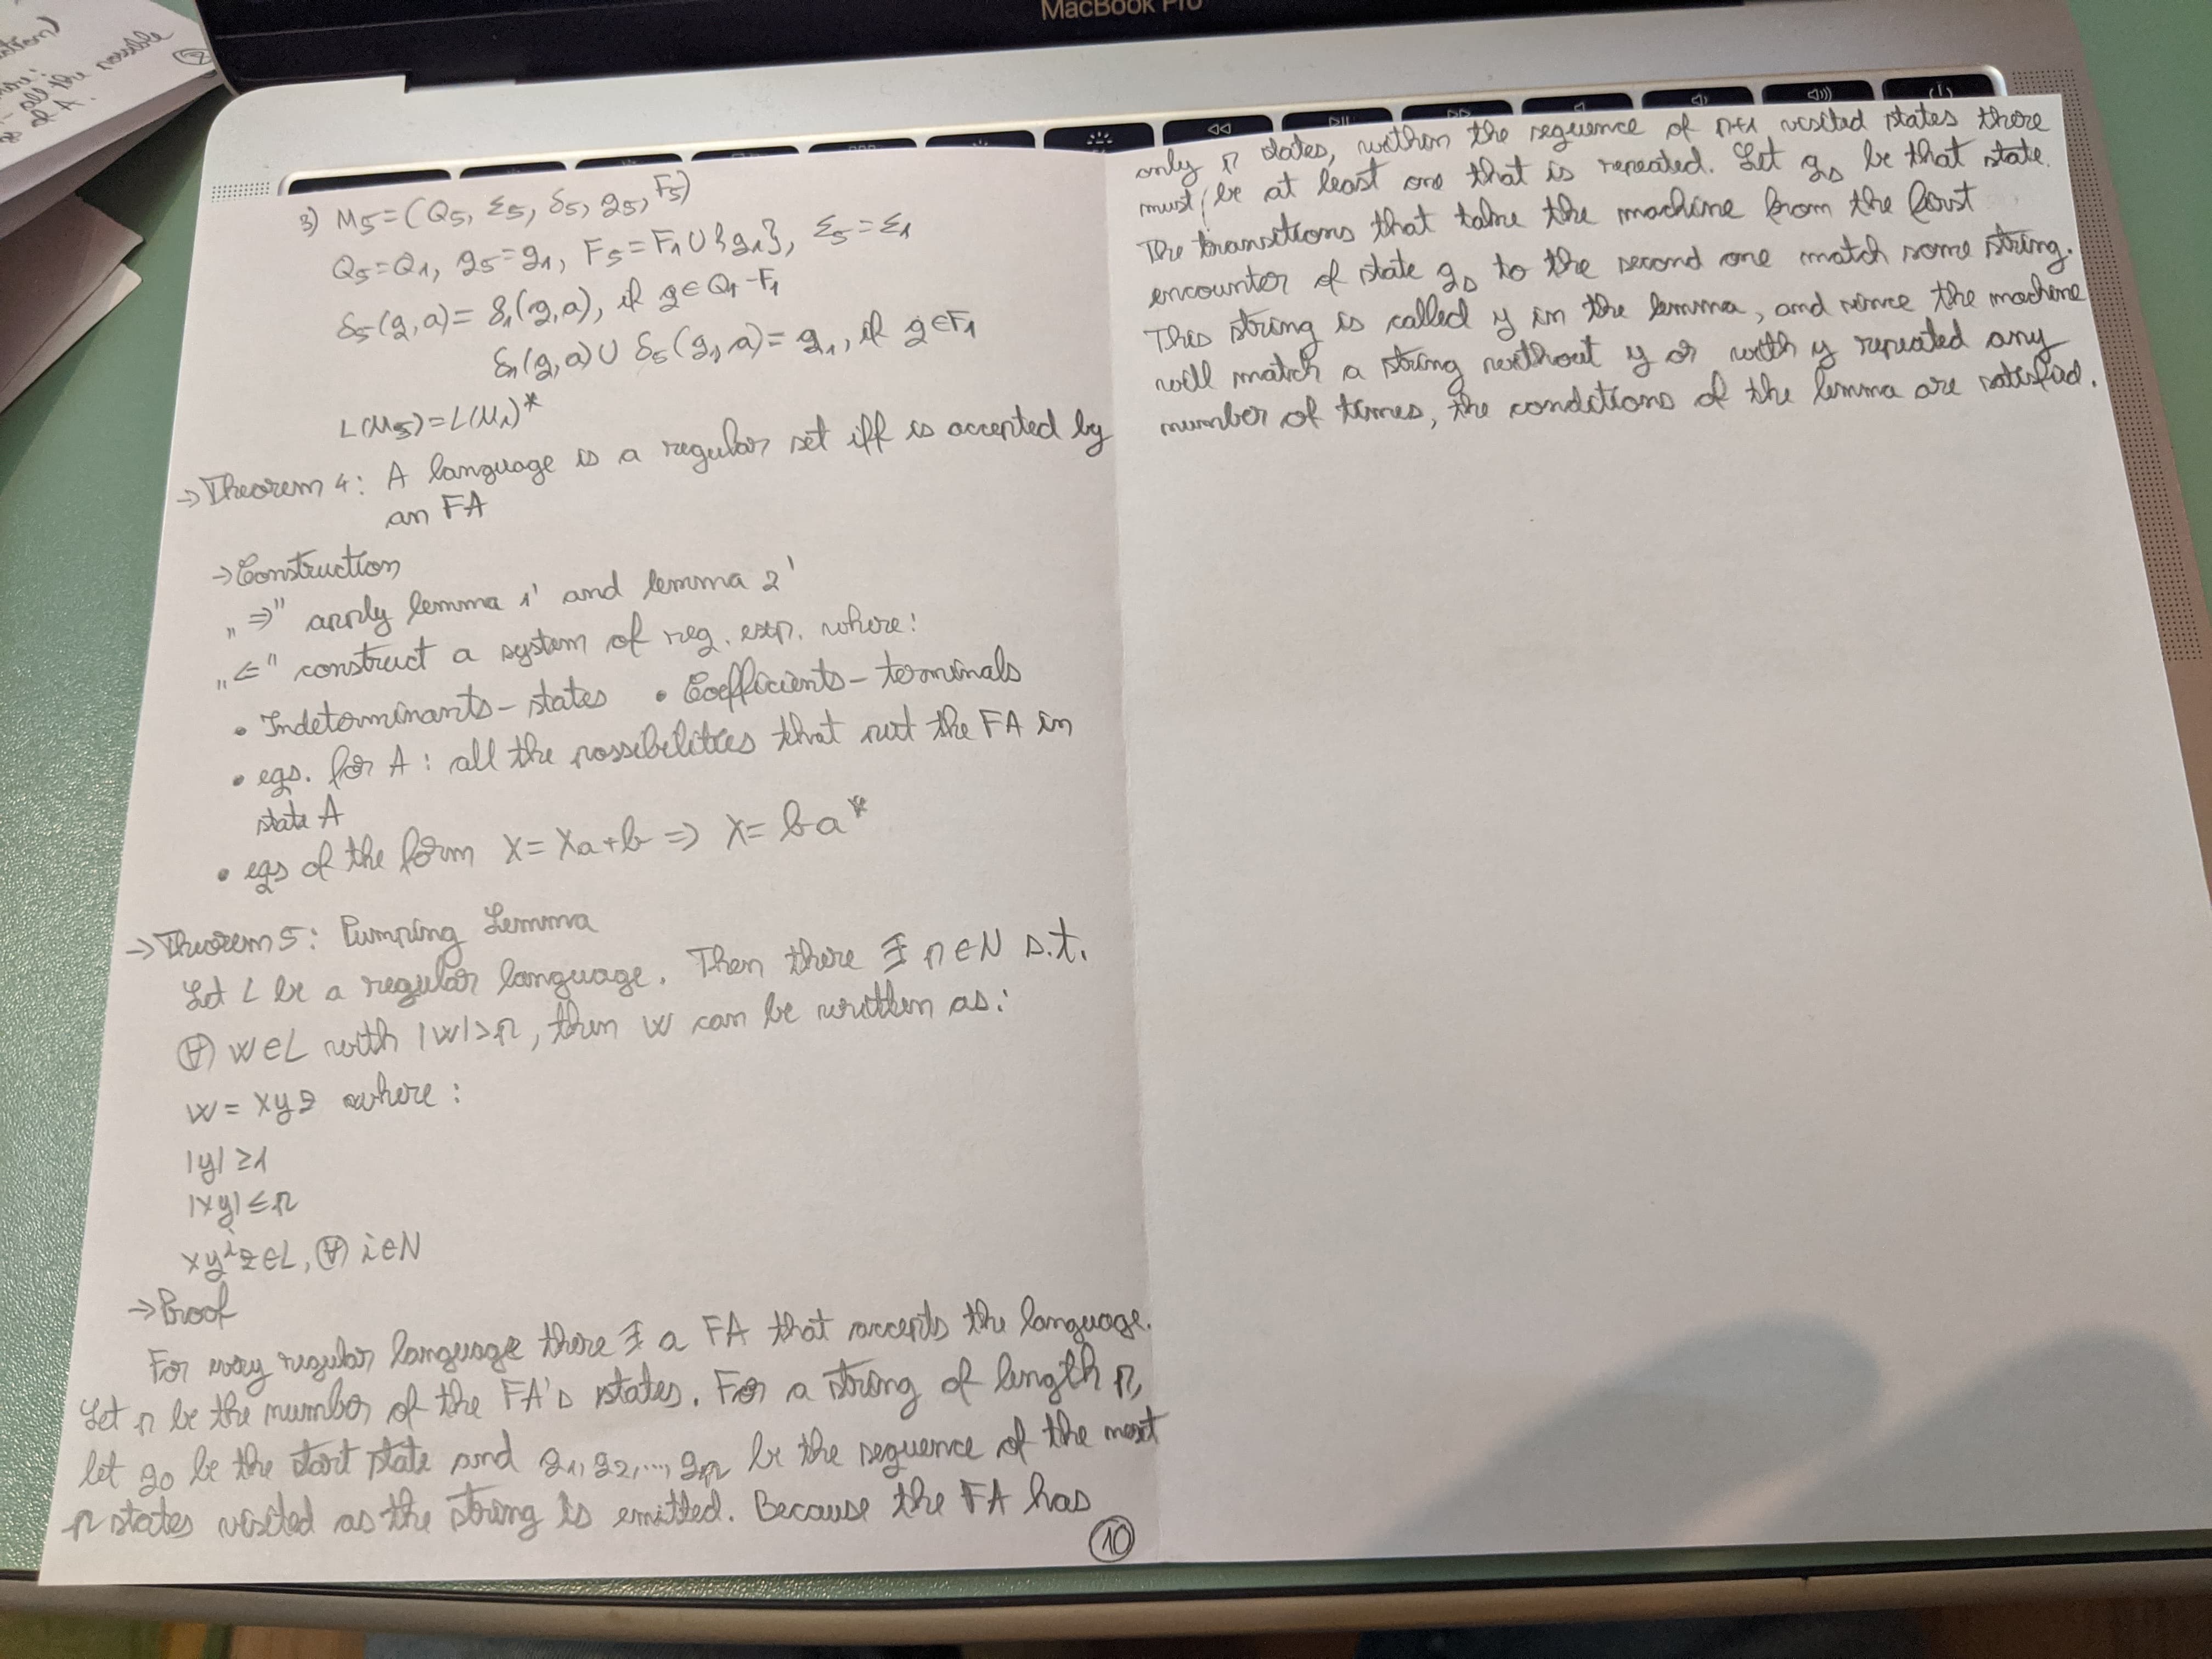 MacBook Pro
all the possible
of A.
3) M5=(Q5, Σ5, δ5, q5, F5)
Q5=Q1, q5=q1, F5=F1∪{q1}, Σ5=Σ1
δ5(q,a)= δ1(q,a), if q∈Q1-F1
δ1(q,a)∪ δ5(q1,a)= q1, if q∈F1
L(M5)=L(M1)*
→Theorem 4: A language is a regular set iff is accepted by
an FA
→Construction
„⇒" apply lemma 1' and lemma 2'
„⇐" construct a system of reg. exp. where:
• Indeterminants-states • Coefficients-terminals
• eqs. for A: all the possibilities that put the FA in
state A
• eqs of the form X=Xa+b => X=ba*
→Theorem 5: Pumping Lemma
Let L be a regular language. Then there ∃ p∈N s.t.
Ⓥ w∈L with |w|>p, then w can be written as:
w=xyz where:
|y|≥1
|xy|≤p
xy^i z∈L, Ⓥ i∈N
→Proof
For every regular language there ∃ a FA that accepts the language.
Let p be the number of the FA's states. For a string of length p,
let q0 be the start state and q1,q2,...,qp be the sequence of the next
p states visited as the string is emitted. Because the FA has
10
only p states, within the sequence of p+1 visited states there
must be at least one that is repeated. Let qs be that state.
The transitions that take the machine from the first
encounter of state qs to the second one match some string.
This string is called y in the lemma, and since the machine
will match a string without y or with y repeated any
number of times, the conditions of the lemma are satisfied.